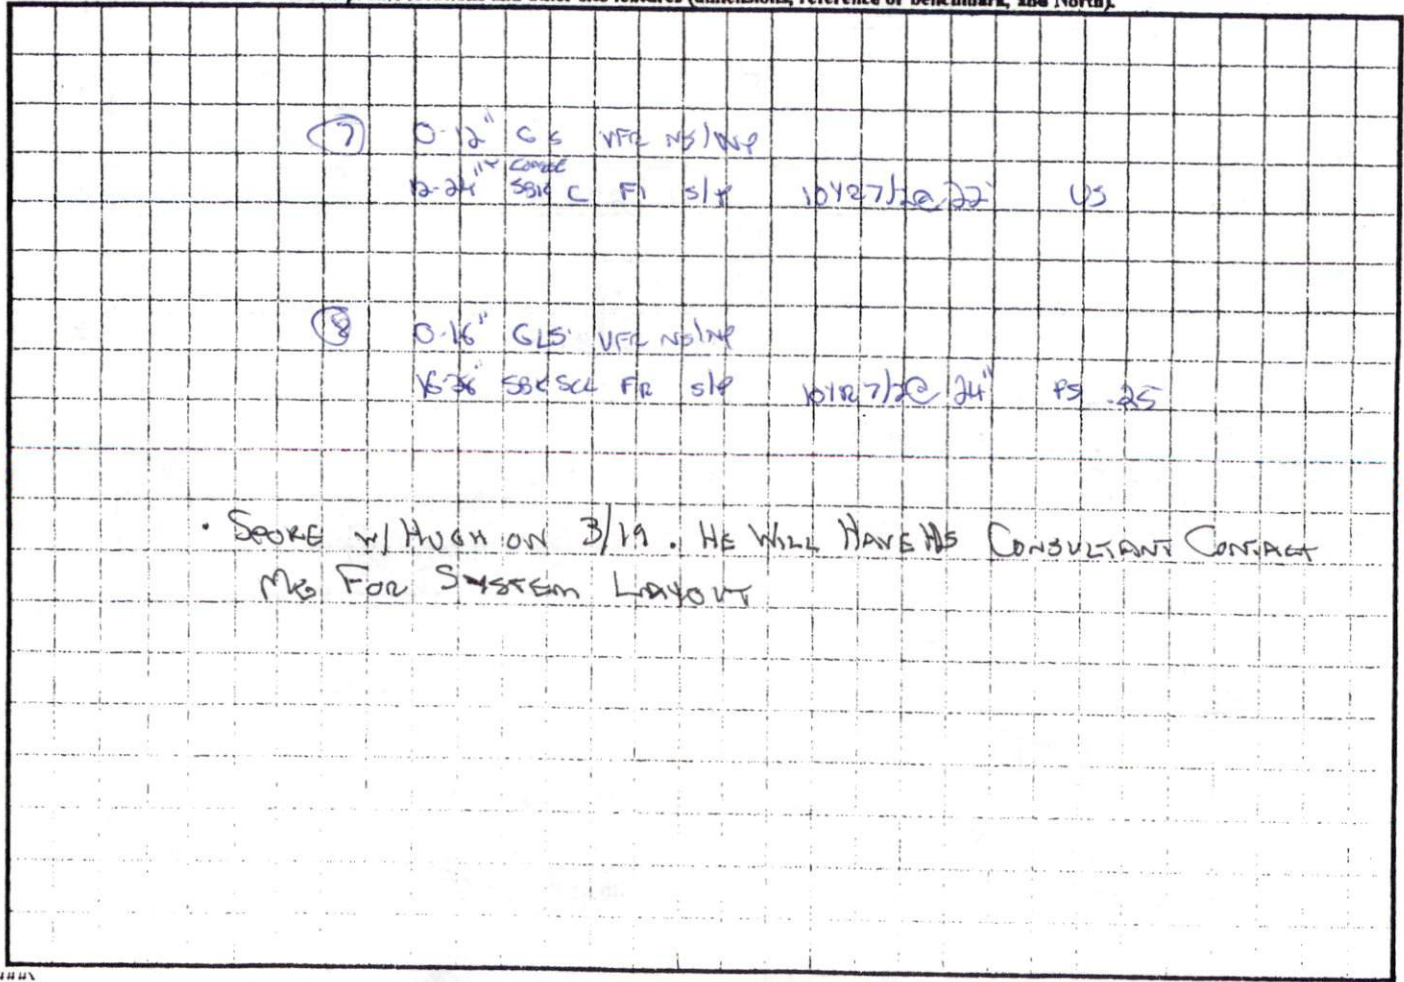 and other site features (dimensions, reference or benchmark, and North).
7 0-12" GS VFR NS/NP
12-24" SBK C FI S/P 10YR 7/2@ 22" US
8 0-16" GLS VFR NS/NP
16-36" SBK SCL FR S/P 10YR 7/2@ 24" PS .25
· SPOKE W/ HUGH ON 3/19. HE WILL HAVE HIS CONSULTANT CONTACT
ME FOR SYSTEM LAYOUT